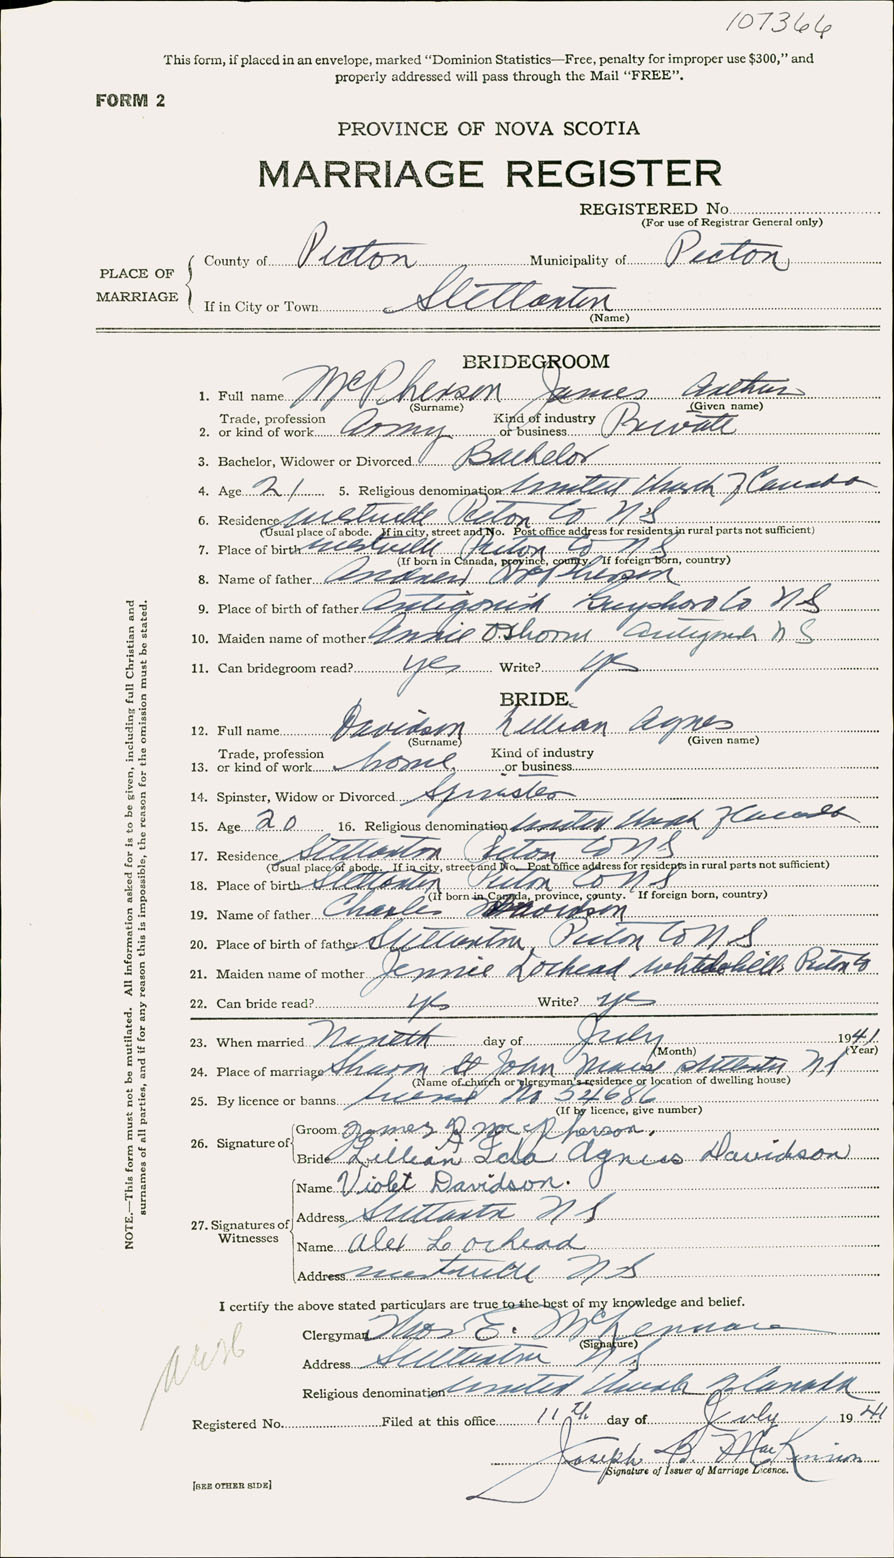 107366
This form, if placed in an envelope, marked "Dominion Statistics—Free, penalty for improper use $300," and
properly addressed will pass through the Mail "FREE".
FORM 2
PROVINCE OF NOVA SCOTIA
MARRIAGE REGISTER
REGISTERED No.
(For use of Registrar General only)
PLACE OF MARRIAGE
County of Pictou Municipality of Pictou
If in City or Town Stellarton
(Name)
BRIDEGROOM
1. Full name McPherson James Arthur
(Surname) (Given name)
2. Trade, profession or kind of work Army Kind of industry or business Private
3. Bachelor, Widower or Divorced Bachelor
4. Age 21 5. Religious denomination United Church of Canada
6. Residence Westville Pictou Co N S
(Usual place of abode. If in city, street and No. Post office address for residents in rural parts not sufficient)
7. Place of birth Westville Pictou Co N S
(If born in Canada, province, county. If foreign born, country)
8. Name of father Andrew McPherson
9. Place of birth of father Antigonish Guysboro Co N S
10. Maiden name of mother Annie Osborne Antigonish N S
11. Can bridegroom read? yes Write? yes
BRIDE
12. Full name Davidson Lillian Agnes
(Surname) (Given name)
13. Trade, profession or kind of work home Kind of industry or business
14. Spinster, Widow or Divorced Spinster
15. Age 20 16. Religious denomination United Church of Canada
17. Residence Stellarton Pictou Co N S
(Usual place of abode. If in city, street and No. Post office address for residents in rural parts not sufficient)
18. Place of birth Stellarton Pictou Co N S
(If born in Canada, province, county. If foreign born, country)
19. Name of father Charles Davidson
20. Place of birth of father Stellarton, Pictou Co N S
21. Maiden name of mother Jennie Lochead Pictou Co
22. Can bride read? yes Write? yes
23. When married Nineth day of July 1941
(Month) (Year)
24. Place of marriage Sharon St John Manse Stellarton N S
(Name of church or clergyman's residence or location of dwelling house)
25. By licence or banns License No 54686
(If by licence, give number)
26. Signature of
Groom James A McPherson.
Bride Lillian Agness Davidson
27. Signatures of Witnesses
Name Violet Davidson.
Address Stellarton N S
Name Alex Lochead
Address Westville N S
I certify the above stated particulars are true to the best of my knowledge and belief.
Clergyman Thos E.
(Signature)
Address Stellarton N S
Religious denomination United Church of Canada
Registered No. Filed at this office 11th day of July 1941
Joseph B. MacKinnon
Signature of Issuer of Marriage Licence.
[SEE OTHER SIDE]
NOTE.—This form must not be mutilated. All information asked for is to be given, including full Christian and
surnames of all parties, and if for any reason this is impossible, the reason for the omission must be stated.